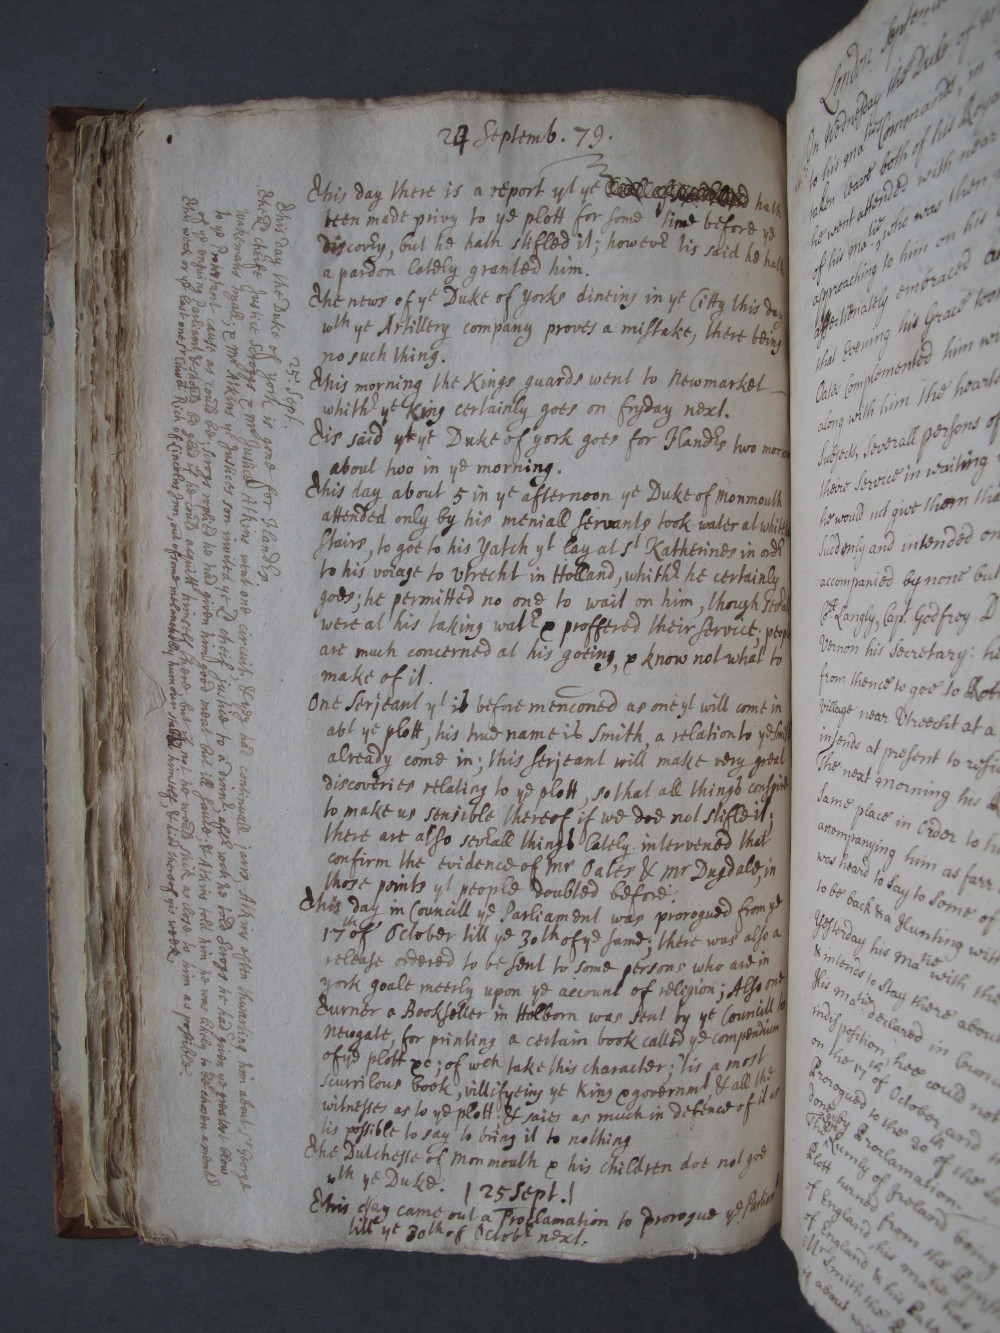 24 Septemb. 79.
This day there is a report yt ye hath
been made privy to ye plott for some time before ye
discovery, but he hath stifled it; howevr tis said he hath
a pardon lately granted him.
The news of ye Duke of Yorks dineing in ye Citty this day
wth ye Artillery company proves a mistake, there being
no such thing.
This morning the Kings guards went to Newmarket
whithr ye King certainly goes on fryday next.
Tis said yt ye Duke of york goes for Flandrs two morow
about two in ye morning.
This day about 5 in ye afternoon ye Duke of Monmouth
attended only by his meniall servants took water at white
stairs, to goe to his Yatch yt lay at St Katherines in ordr
to his voiage to Utrecht in Holland, whithr he certainly
goes; he permitted no one to wait on him, though severall
were at his taking watr & proffered their service; people
are much concerned at his goeing, & know not what to
make of it.
One Serjeant yt is before menconed as one yt will come in
abt ye plott, his true name is Smith, a relation to ye Smith
already come in; this serjeant will make very great
discoveries relating to ye plott, so that all things conspire
to make us sensible thereof if we doe not stifle it;
there are also severall things lately intervened that
confirm the evidence of Mr Oates & mr Dugdale, in
those points yt people doubted before.
This day in Councill ye Parliament was prorogued from ye
17th of October till ye 30th of ye same; there was also a
release ordered to be sent to some persons who are in
york goale meerly upon ye account of religion; Also one
Turner a Bookseller in Holborn was sent by ye Councill to
newgate, for printing a certain book called ye compendium
of ye plott &c; of wch take this character; 'tis a most
scurrilous book, villifyeing ye King & governmt & all the
witnesses as to ye plott, & saies as much in defence of it as
tis possible to say to bring it to nothing
The Dutchesse of Monmouth & his children doe not goe
wth ye Duke.
25 Sept.
This day came out a Proclamation to prorogue ye Parliamt
till ye 30th of Octobr next.
25. Sept.
This day the Duke of York is gone for Flandrs.
The Ld cheife Justice Scroggs & mr Justice Atkins went one circuit, & they had continuall jarrs Atkins often thwarting him about Sr George
Wakemans tryall; & Mr Atkins ye Justices son invited ye Ld cheif justice to a dinr, aftr wch he told Scroggs he had given ye greatest blow
to ye protestant cause as could be; Scrogs replied he had given him good meat but ill sauce; & Atkins told him he was liable to be a member
of ye ensuing Parliamt & should be glad if he could acquitt himself there but if not he would stick as close to him as possible.
This week or ye last one Sr Edward Rich of Lincolns Inn, out of some melancholly humour himself, & died thereof yis week.
London Septem
On Wednesday the Duke of
to his maties Commands, in
taken leave both of his Roya
he went attended with
of his matie, who was then
approaching to him on his
affectionately embraced
that evening his Grace took
Complemented him
along with him the hearts
Subjects, severall persons of
their service in waiting
he would not give them
suddenly and intended on
accompanied by none but
Langly, Cap. Godfrey
Vernon his Secretary: he
from thence to goe to Rot
village near Utrecht at a
intends at present to resi
The next morning his
same place in order to his
accompanying him as farr
was heard to say to some of
to be back & a Hunting with
Yesterday his matie with the
& intends to stay there about
His matie declared in Counc
indisposition, hee could not
on the 17 of October, and
Prorogued to the 30 of the
done by Proclamation.
The Lumly of Ireland being
turned from the
of England, his matie has
of England & his
Mr Smith the
is about